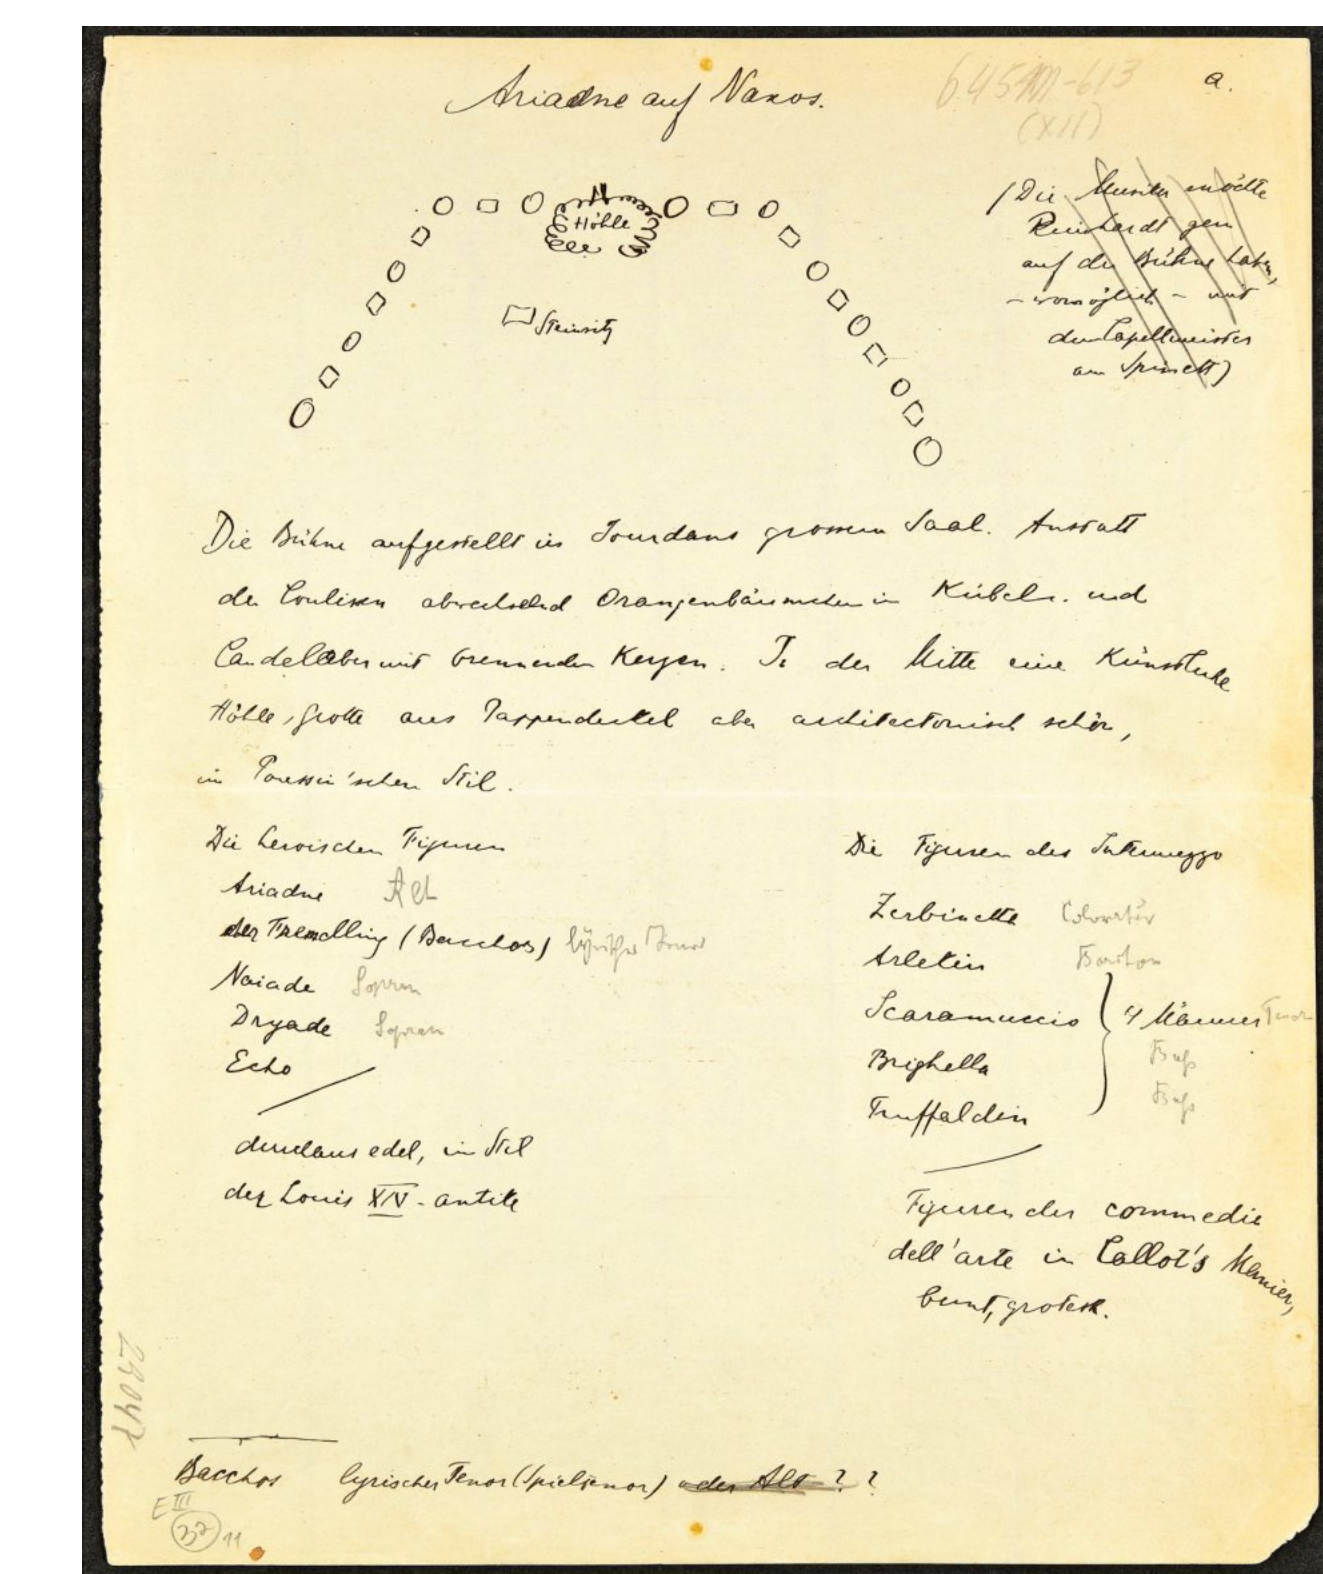 Ariadne auf Naxos.
a.
645M-613
(XII)
(Die Musik möchte
Reinhardt gern
auf der Bühne haben,
- womöglich - mit
dem Capellmeister
am Spinett)
Höhle
Steinsitz
Die Bühne aufgestellt in Jourdans grossem Saal. Anstatt
der Coulissen abwechselnd Orangenbäumchen in Kübeln. und
Candelaber mit brennenden Kerzen. In der Mitte eine künstliche
Höhle, Grotte aus Pappendeckel aber architectonisch schön,
im Poussin'schen Stil.
Die heroischen Figuren
Ariadne Alt
der Fremdling (Bacchos) lyrischer Tenor
Naiade Sopran
Dryade Sopran
Echo
durchaus edel, im Stil
der Louis XIV - antike
Die Figuren des Intermezzo
Zerbinetta Coloratur
Arlekin Bariton
Scaramuccio 4 Männer Tenor
Brighella Baß
Truffaldin Baß
Figuren der commedie
dell'arte in Callot's Manier,
bunt, grotesk.
23047
Bacchos lyrischer Tenor (Spieltenor) oder Alt ? ?
E III
32 11